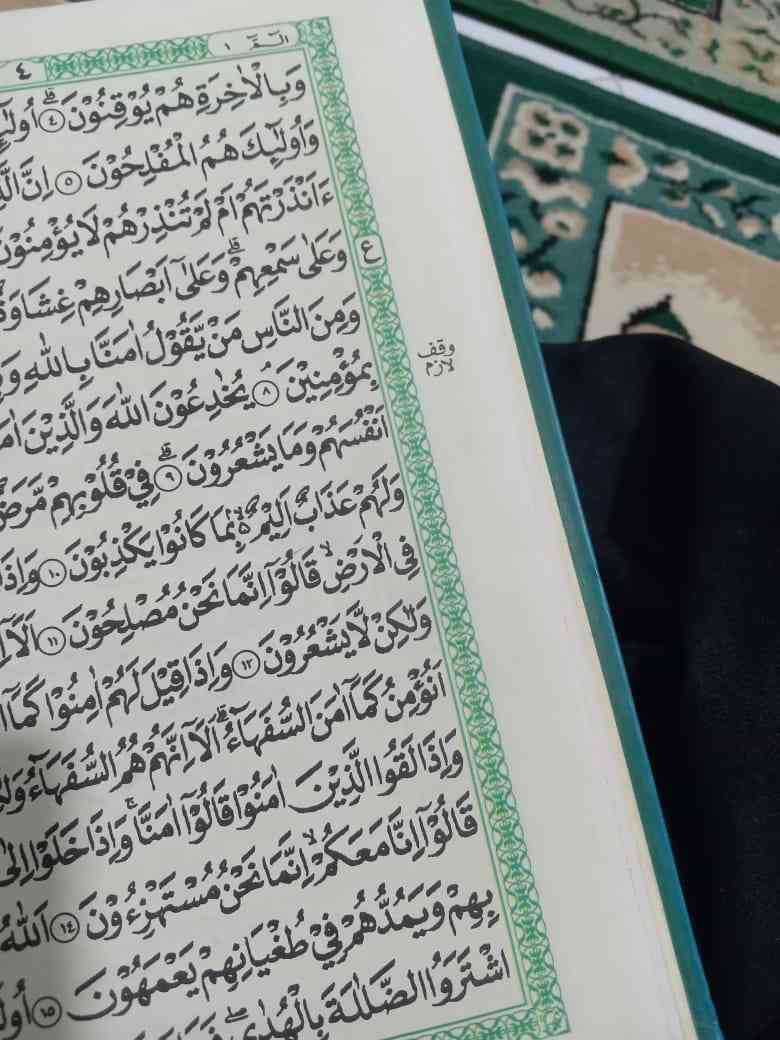 الٓمّٓ ١
٤
وَبِالْاٰخِرَةِ هُمْ يُوْقِنُوْنَ ۗ ٤
وَاُولٰۤىِٕكَ هُمُ الْمُفْلِحُوْنَ ٥ اِنَّ
ءَاَنْذَرْتَهُمْ اَمْ لَمْ تُنْذِرْهُمْ لَا يُؤْمِنُوْنَ
ع
وَعَلٰى سَمْعِهِمْ ۗ وَعَلٰٓى اَبْصَارِهِمْ غِشَاوَةٌ
وَمِنَ النَّاسِ مَنْ يَّقُوْلُ اٰمَنَّا بِاللّٰهِ
وقف لازم
بِمُؤْمِنِيْنَ ۘ ٨ يُخٰدِعُوْنَ اللّٰهَ وَالَّذِيْنَ
اَنْفُسَهُمْ وَمَا يَشْعُرُوْنَ ۗ ٩ فِيْ قُلُوْبِهِمْ مَّرَضٌ
وَلَهُمْ عَذَابٌ اَلِيْمٌ ەۙ بِمَا كَانُوْا يَكْذِبُوْنَ ١٠ وَاِذَا
فِى الْاَرْضِۙ قَالُوْٓا اِنَّمَا نَحْنُ مُصْلِحُوْنَ ١١ اَلَآ
وَلٰكِنْ لَّا يَشْعُرُوْنَ ١٢ وَاِذَا قِيْلَ لَهُمْ اٰمِنُوْا كَمَآ
اَنُؤْمِنُ كَمَآ اٰمَنَ السُّفَهَاۤءُ ۗ اَلَآ اِنَّهُمْ هُمُ السُّفَهَاۤءُ
وَاِذَا لَقُوا الَّذِيْنَ اٰمَنُوْا قَالُوْٓا اٰمَنَّا ۚ وَاِذَا خَلَوْا اِلٰى
قَالُوْٓا اِنَّا مَعَكُمْ ۙ اِنَّمَا نَحْنُ مُسْتَهْزِءُوْنَ ١٤ اَللّٰهُ
بِهِمْ وَيَمُدُّهُمْ فِيْ طُغْيَانِهِمْ يَعْمَهُوْنَ ١٥
اشْتَرَوُا الضَّلٰلَةَ بِالْهُدٰىۖ